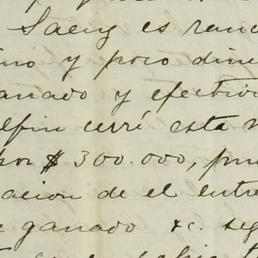 Saenz es ran
ino y poco dine
anado y efectivo
lfin cerré esta n
por $ 300.000, pu
acion de el entre
ganado &c. seg